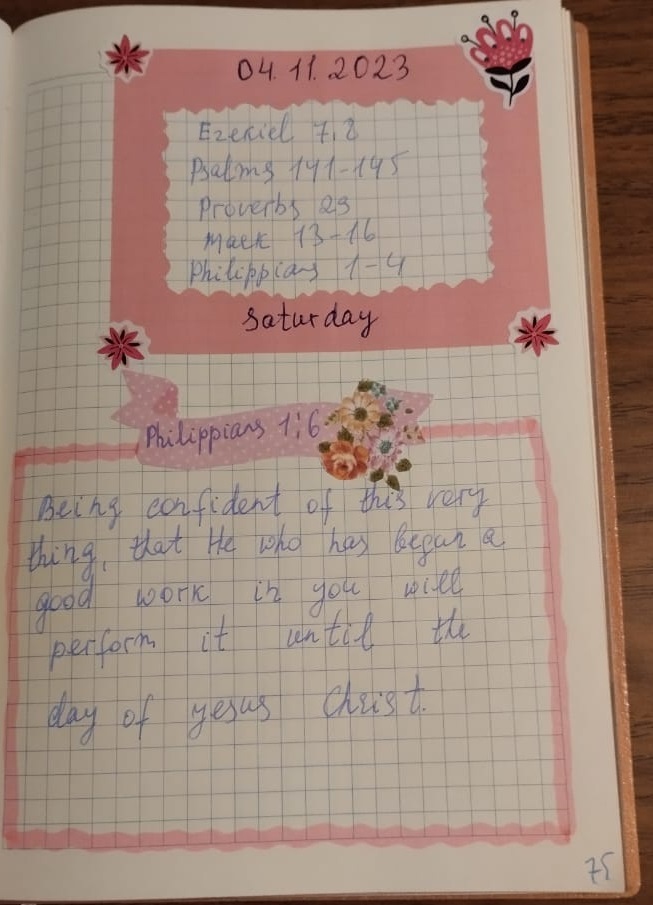 04.11.2023
Ezekiel 7,8
Psalms 141-145
Proverbs 29
Mark 13-16
Philippians 1-4
Saturday
Philippians 1:6
Being confident of this very
thing, that He who has begun a
good work in you will
perform it until the
day of yesus Christ.
75